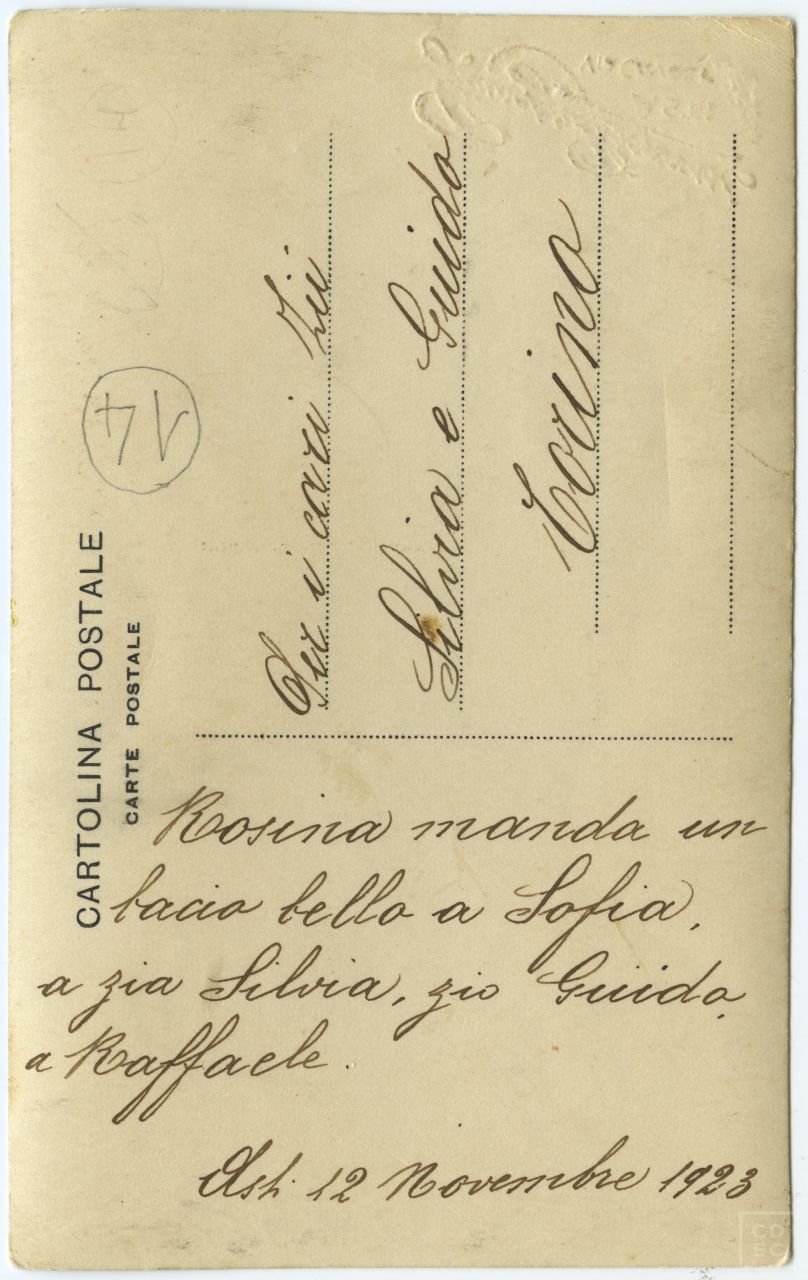 CARTOLINA POSTALE
CARTE POSTALE
14
Per i cari Zii
Silvia e Guido
Torino
Rosina manda un
bacio bello a Sofia,
a zia Silvia, zio Guido,
a Raffaele.
Asti 12 Novembre 1923
CD
EC